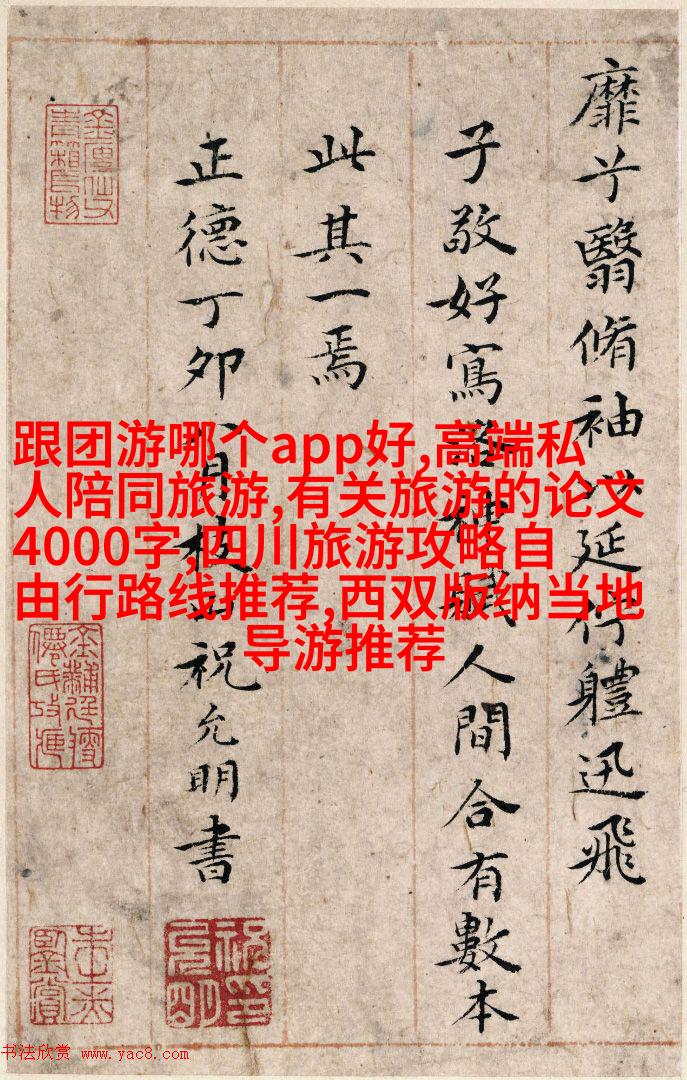 靡兮翳脩袖以延佇體迅飛
子敬好寫洛神賦人間合有數本
此其一焉
正德丁卯八月枝山祝允明書
跟团游哪个app好,高端私
人陪同旅游,有关旅游的论文
4000字,四川旅游攻略自
由行路线推荐,西双版纳当地
导游推荐
书法欣赏 www.yac8.com